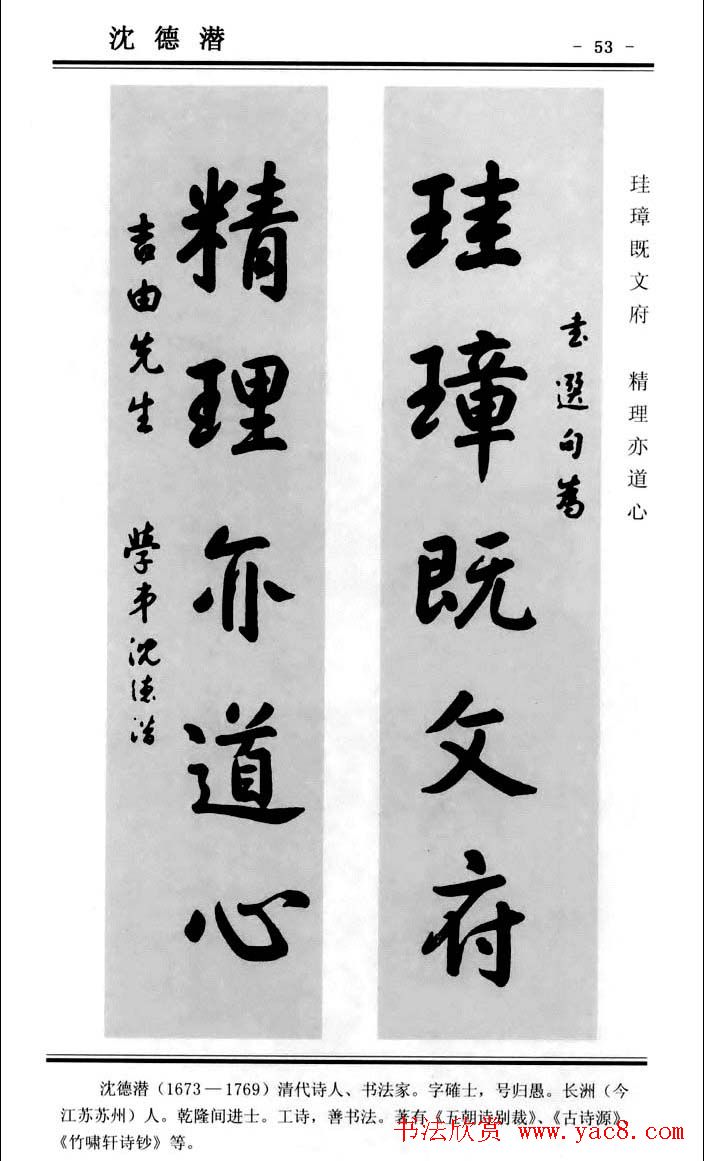 沈德潜
- 53 -
珪璋既文府 精理亦道心
书选句为
珪璋既文府
精理亦道心
吉由先生 学弟沈德潜
沈德潜（1673—1769）清代诗人、书法家。字確士，号归愚。长洲（今
江苏苏州）人。乾隆间进士。工诗，善书法。著有《五朝诗别裁》、《古诗源》
《竹啸轩诗钞》等。
书法欣赏 www.yac8.com